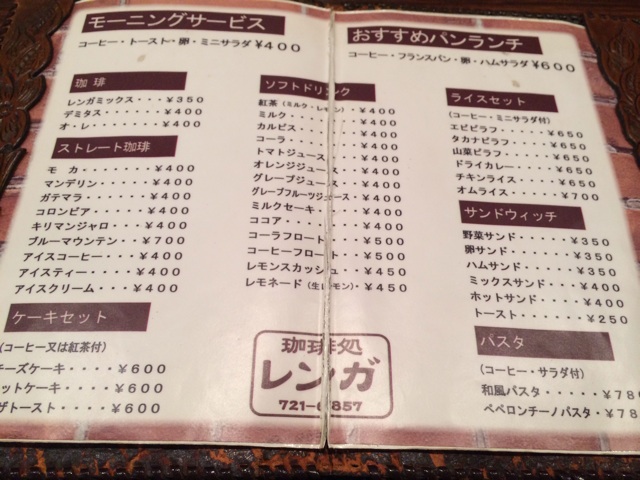 モーニングサービス
コーヒー・トースト・卵・ミニサラダ ¥400
珈琲
レンガミックス・・・¥350
デミタス・・・・・¥400
オ・レ・・・・・・¥400
ストレート珈琲
モカ・・・・・・・¥400
マンデリン・・・・¥400
ガテマラ・・・・・¥400
コロンビア・・・・¥400
キリマンジャロ・・・¥400
ブルーマウンテン・・¥700
アイスコーヒー・・・¥400
アイスティー・・・・¥400
アイスクリーム・・・¥400
ケーキセット
(コーヒー又は紅茶付)
チーズケーキ・・・・¥600
ットケーキ・・・・¥600
ザトースト・・・・¥600
ソフトドリンク
紅茶(ミルク・レモン)・¥400
ミルク・・・・・・¥400
カルピス・・・・・¥400
コーラ・・・・・・¥400
トマトジュース・・・¥400
オレンジジュース・・¥400
グレープジュース・・¥400
グレープフルーツジュース・¥400
ミルクセーキ・・・・¥400
ココア・・・・・・¥400
コーラフロート・・・¥500
コーヒーフロート・・¥500
レモンスカッシュ・・¥450
レモネード(生レモン)・¥450
珈琲処
レンガ
おすすめパンランチ
コーヒー・フランスパン・卵・ハムサラダ ¥600
ライスセット
(コーヒー・ミニサラダ付)
エビピラフ・・・・・¥650
タカナピラフ・・・・¥650
山菜ピラフ・・・・・¥650
ドライカレー・・・・¥650
チキンライス・・・・¥650
オムライス・・・・・¥700
サンドウィッチ
野菜サンド・・・・・¥350
卵サンド・・・・・・¥350
ハムサンド・・・・・¥350
ミックスサンド・・・¥400
ホットサンド・・・・¥400
トースト・・・・・・¥250
パスタ
(コーヒー・サラダ付)
和風パスタ・・・・・¥78
ペペロンチーノパスタ・¥78